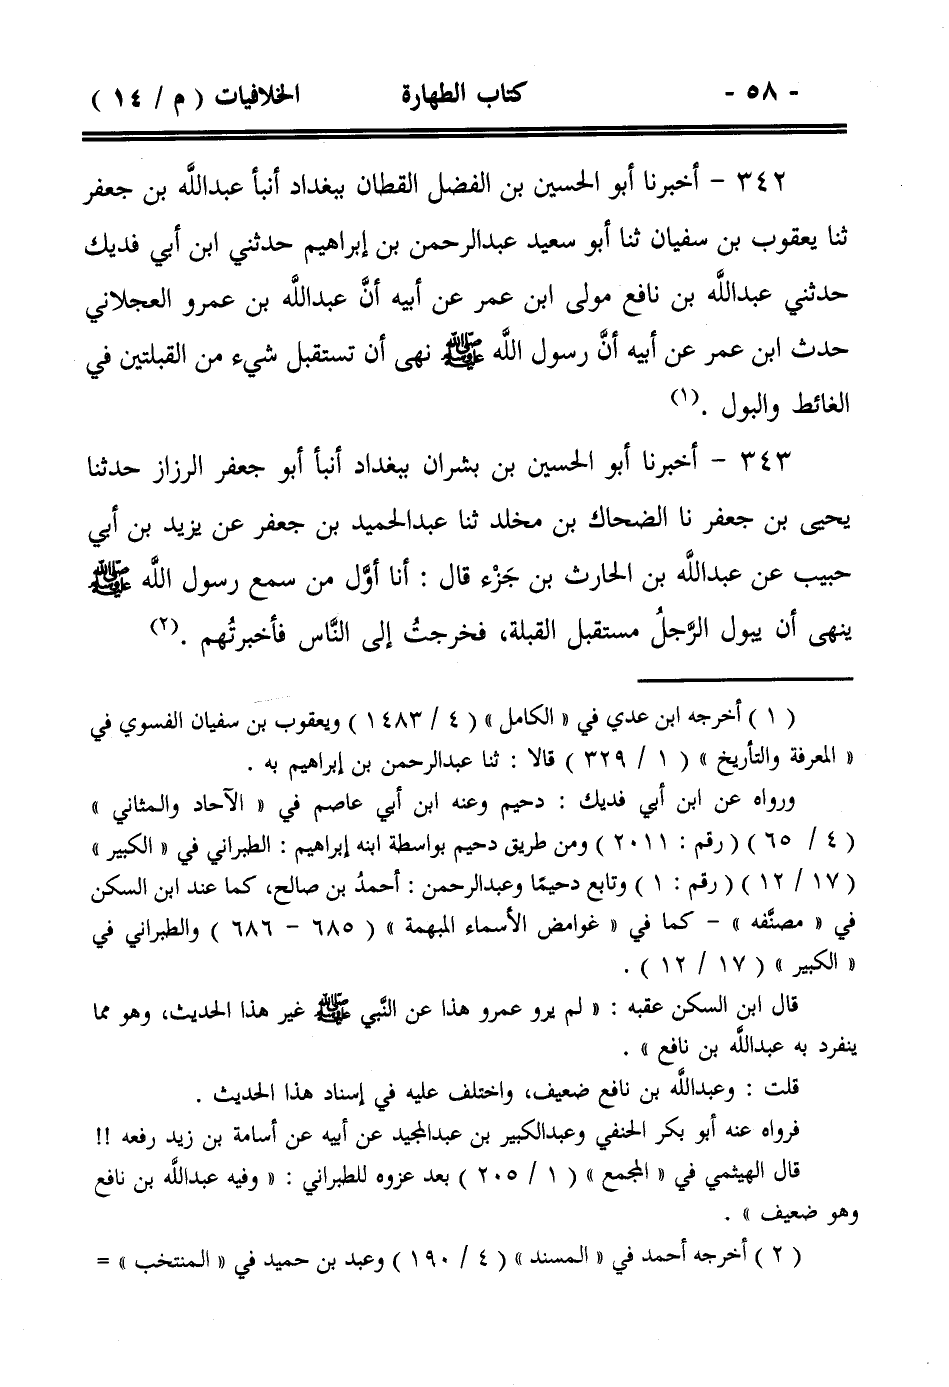 - ٥٨ - كتاب الطهارة الخلافيات ( م / ١٤ )
٣٤٢ - أخبرنا أبو الحسين بن الفضل القطان ببغداد أنبأ عبدالله بن جعفر
ثنا يعقوب بن سفيان ثنا أبو سعيد عبدالرحمن بن إبراهيم حدثني ابن أبي فديك
حدثني عبداللَّه بن نافع مولى ابن عمر عن أبيه أنَّ عبداللَّه بن عمرو العجلاني
حدث ابن عمر عن أبيه أنَّ رسول اللَّه ﷺ نهى أن تستقبل شيء من القبلتين في
الغائط والبول .(١)
٣٤٣ - أخبرنا أبو الحسين بن بشران ببغداد أنبأ أبو جعفر الرزاز حدثنا
يحيى بن جعفر نا الضحاك بن مخلد ثنا عبدالحميد بن جعفر عن يزيد بن أبي
حبيب عن عبداللَّه بن الحارث بن جَزْء قال : أنا أوَّل من سمع رسول اللَّه ﷺ
ينهى أن يبول الرَّجلُ مستقبل القبلة، فخرجتُ إلى النَّاس فأخبرتُهم .(٢)
( ١ ) أخرجه ابن عدي في « الكامل » ( ٤ / ١٤٨٣ ) ويعقوب بن سفيان الفسوي في
« المعرفة والتأريخ » ( ١ / ٣٢٩ ) قالا : ثنا عبدالرحمن بن إبراهيم به .
ورواه عن ابن أبي فديك : دحيم وعنه ابن أبي عاصم في « الآحاد والمثاني »
( ٤ / ٦٥ ) ( رقم : ٢٠١١ ) ومن طريق دحيم بواسطة ابنه إبراهيم : الطبراني في « الكبير »
( ١٧ / ١٢ ) ( رقم : ١ ) وتابع دحيمًا وعبدالرحمن : أحمدُ بن صالح، كما عند ابن السكن
في « مصنَّفه » - كما في « غوامض الأسماء المبهمة » ( ٦٨٥ - ٦٨٦ ) والطبراني في
« الكبير » ( ١٧ / ١٢ ) .
قال ابن السكن عقبه : « لم يرو عمرو هذا عن النَّبي ﷺ غير هذا الحديث، وهو مما
ينفرد به عبداللَّه بن نافع » .
قلت : وعبداللَّه بن نافع ضعيف، واختلف عليه في إسناد هذا الحديث .
فرواه عنه أبو بكر الحنفي وعبدالكبير بن عبدالمجيد عن أبيه عن أسامة بن زيد رفعه !!
قال الهيثمي في « المجمع » ( ١ / ٢٠٥ ) بعد عزوه للطبراني : « وفيه عبداللَّه بن نافع
وهو ضعيف » .
( ٢ ) أخرجه أحمد في « المسند » ( ٤ / ١٩٠ ) وعبد بن حميد في « المنتخب » =